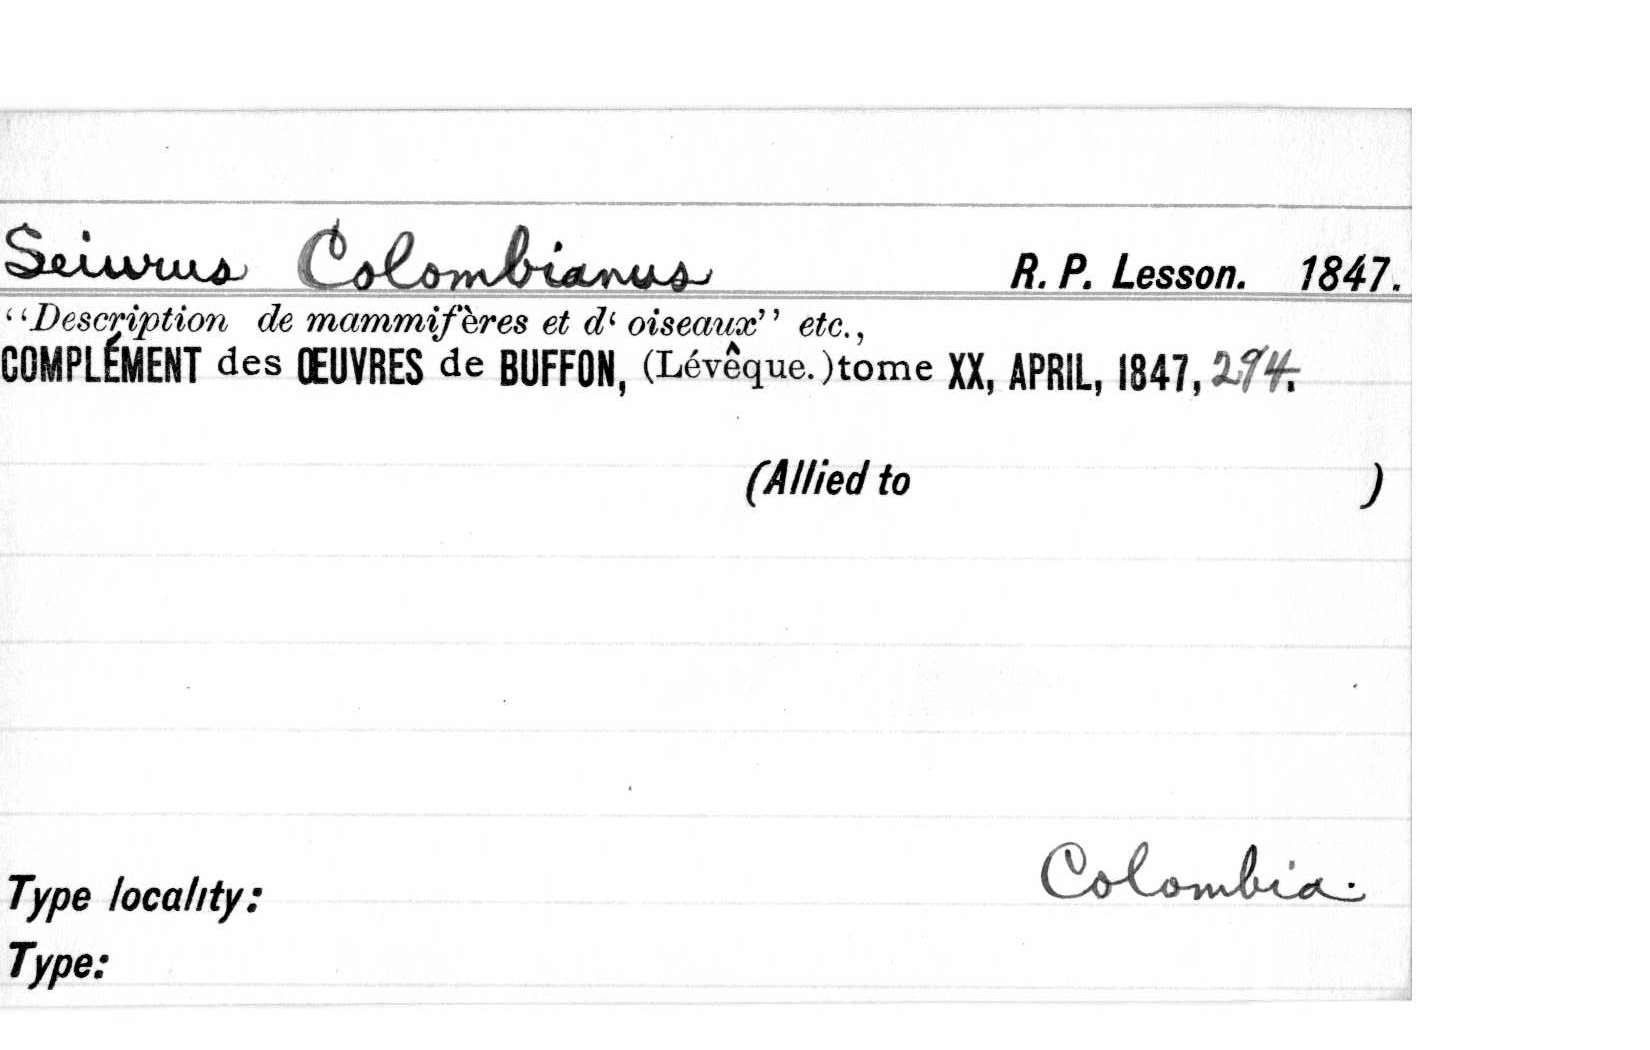 Seiurus Colombianus R. P. Lesson. 1847.
“Description de mammifères et d‘ oiseaux” etc.,
COMPLÉMENT des ŒUVRES de BUFFON, (Lévêque.)tome XX, APRIL, 1847, 294.
(Allied to )
Type locality: Colombia.
Type: